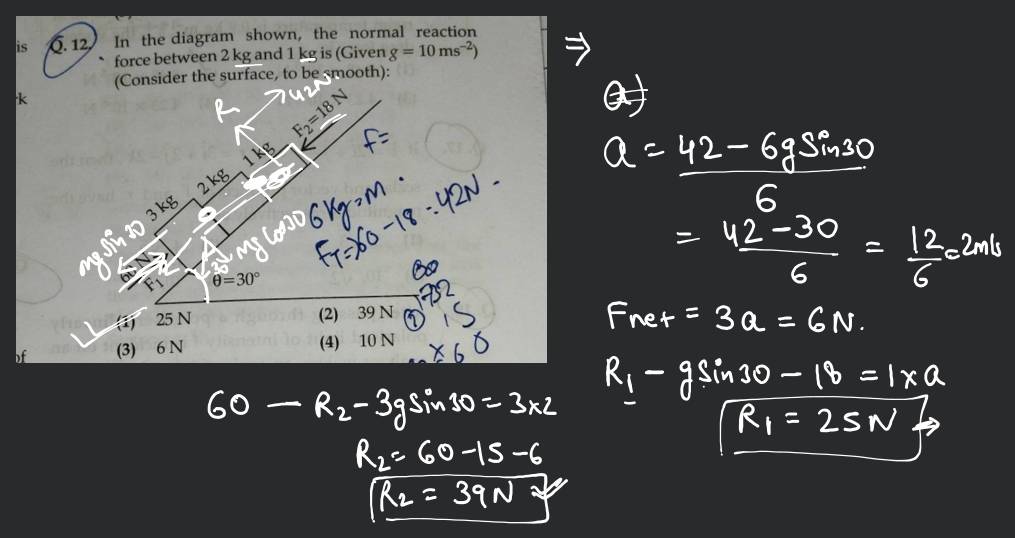 is
Q. 12. In the diagram shown, the normal reaction
force between 2 kg and 1 kg is (Given g = 10 ms⁻²)
(Consider the surface, to be smooth):
rk
R
42N.
F₂=18 N
1 kg
2 kg
3 kg
F=
mg sin 30
mg cos 30
30
6 kg = M.
F₁
θ=30°
(1) 25 N
(2) 39 N
(3) 6 N
(4) 10 N
of
15
⇒
a = 42 – 6g Sin30
6
= 42 – 30
6
= 12
6
= 2m/s
Fnet = 3a = 6N.
R₁ – g Sin 30 – 18 = 1 x a
R₁ = 25N
60 – R₂ – 3g Sin 30 = 3x2
R₂ = 60 – 15 – 6
R₂ = 39N